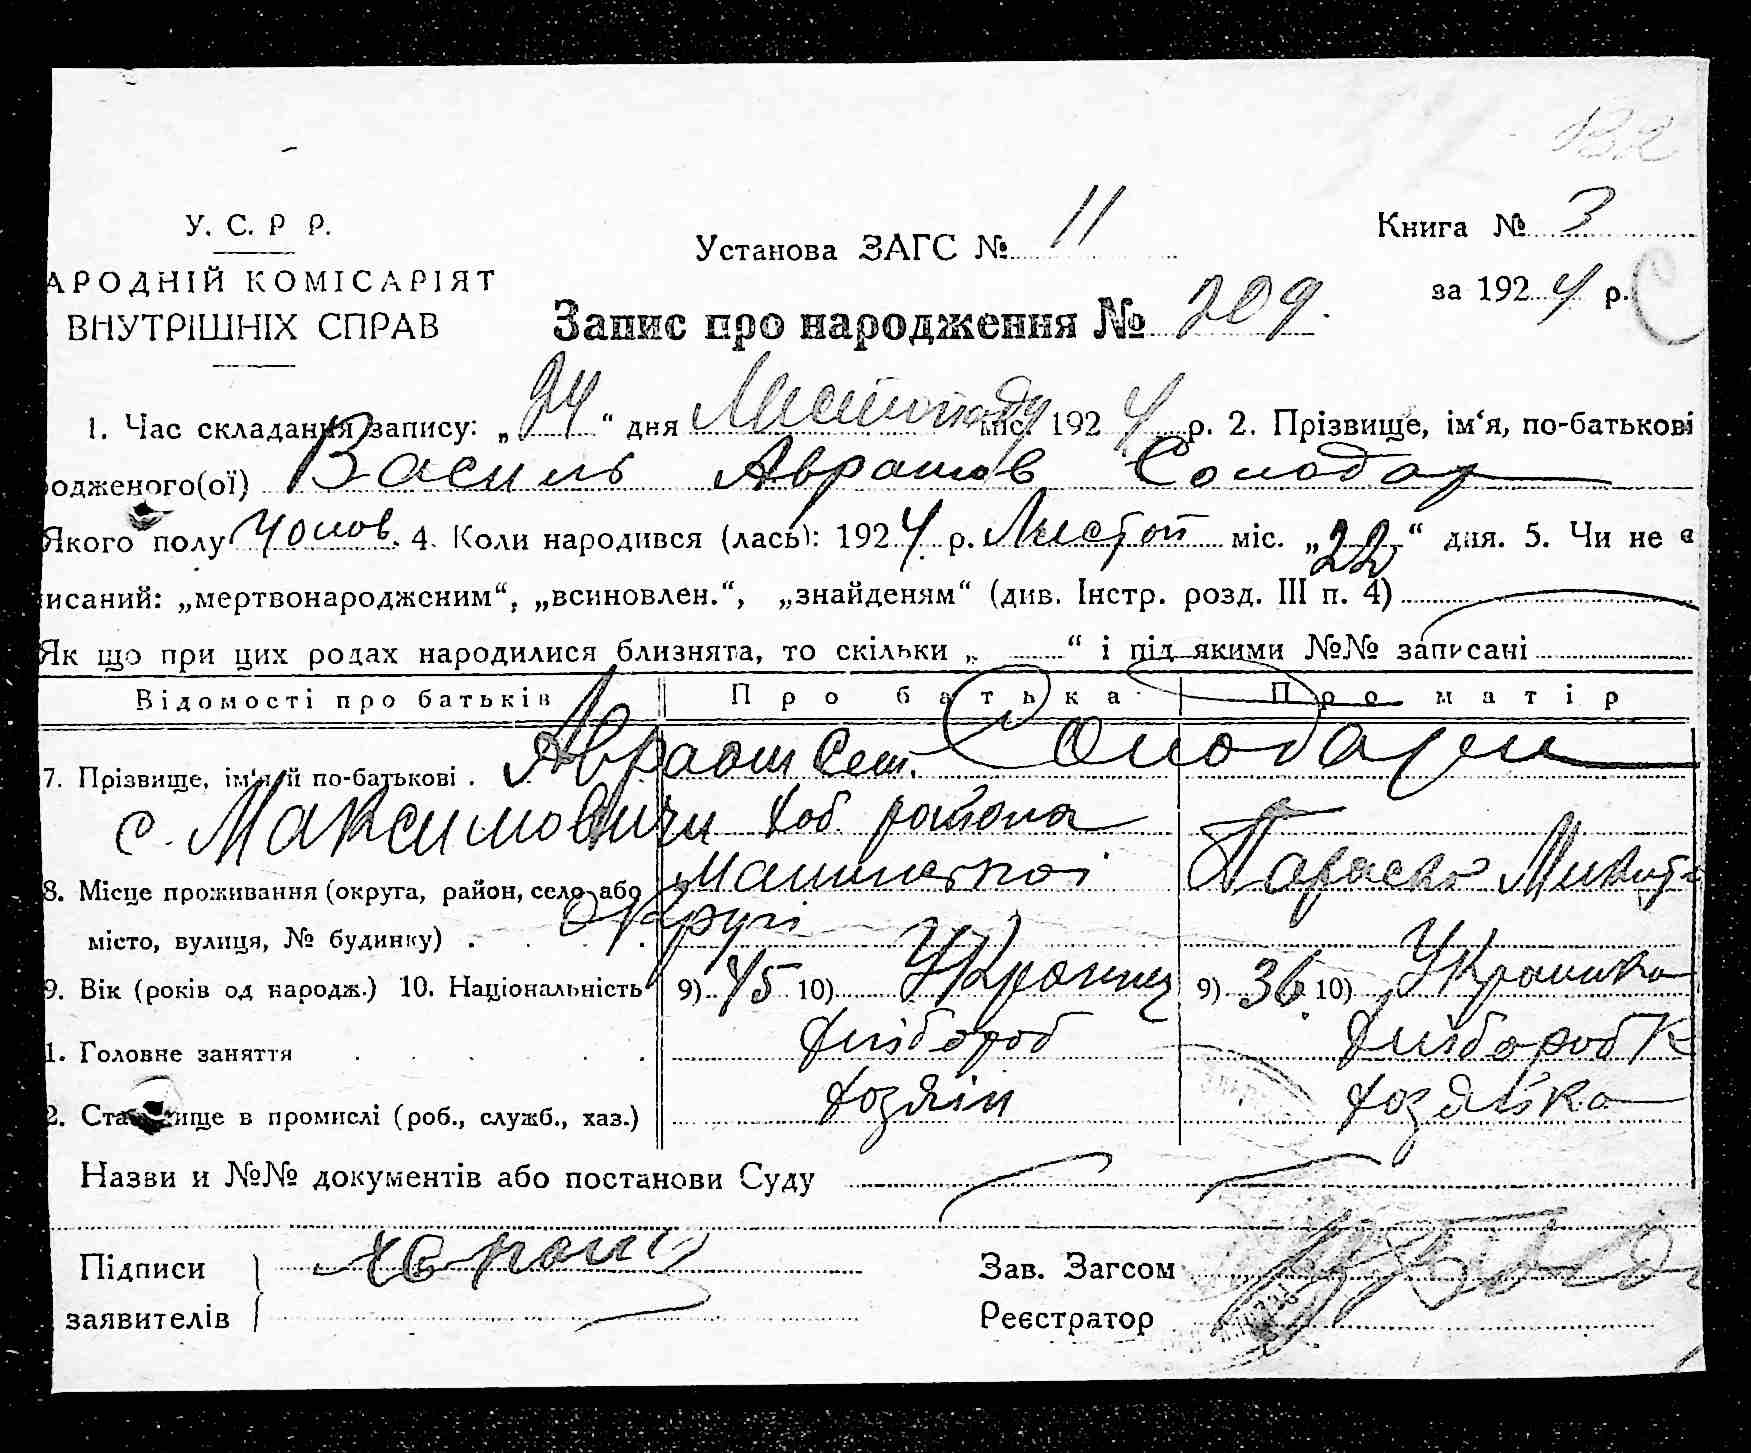 132
У. С. Р Р.
АРОДНІЙ КОМІСАРІЯТ
ВНУТРІШНІХ СПРАВ
Установа ЗАГС № 11
Книга № 3
за 1924 р.
Запис про народження № 209.
1. Час складання запису: „24“ дня Листопаду міс. 1924 р. 2. Прізвище, ім‘я, по-батькові
одженого(ої) Василь Аврамов Солодар
Якого полу Чолов. 4. Коли народився (лась): 1924 р. Листоп міс. „22“ дня. 5. Чи не є
исаний: „мертвонародженим“, „всиновлен.“, „знайденям“ (див. Інстр. розд. III п. 4)
Як що при цих родах народилися близнята, то скільки „ “ і під якими №№ записані
Відомості про батьків Про батька Про матір
7. Прізвище, ім‘я й по-батькові . Авраам Сем. Солодари
с. Максимовичи Хаб. района
8. Місце проживання (округа, район, село або Малинської Параска Микит
місто, вулиця, № будинку) . округі
9. Вік (років од народж.) 10. Національність 9) 45 10) Українец 9) 36 10) Українка
1. Головне заняття . . . . . . Хлібороб Хліборобк
2. Становище в промислі (роб., служб., хаз.) Хозяін Хозяйка
Назви и №№ документів або постанови Суду
Підписи
заявителів
Зав. Загсом
Реєстратор